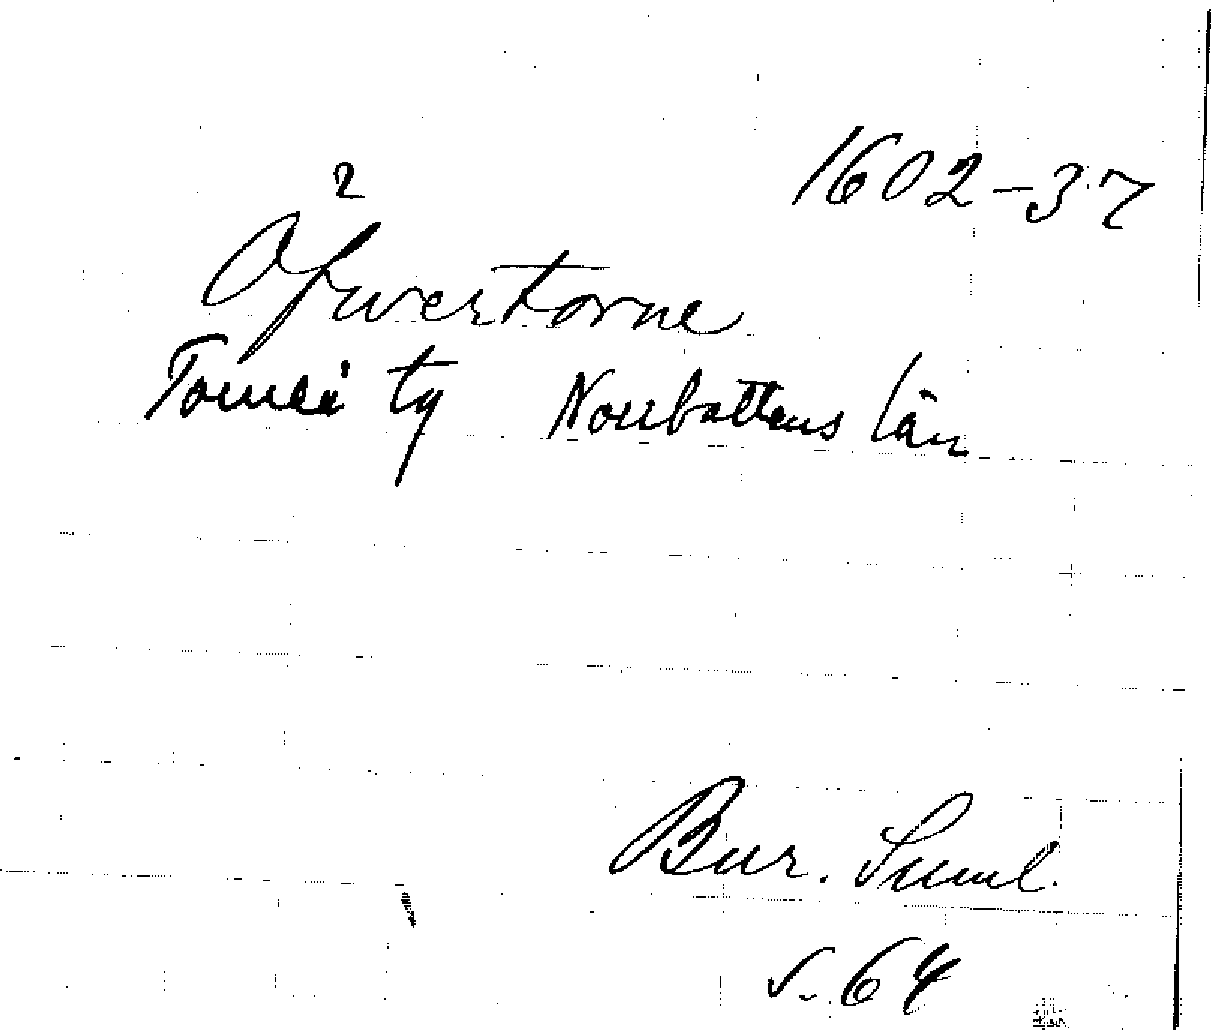 1602-37
2
Ofwertorne
Torneå tg Norrbottens län
Bur. Suml.
s. 64